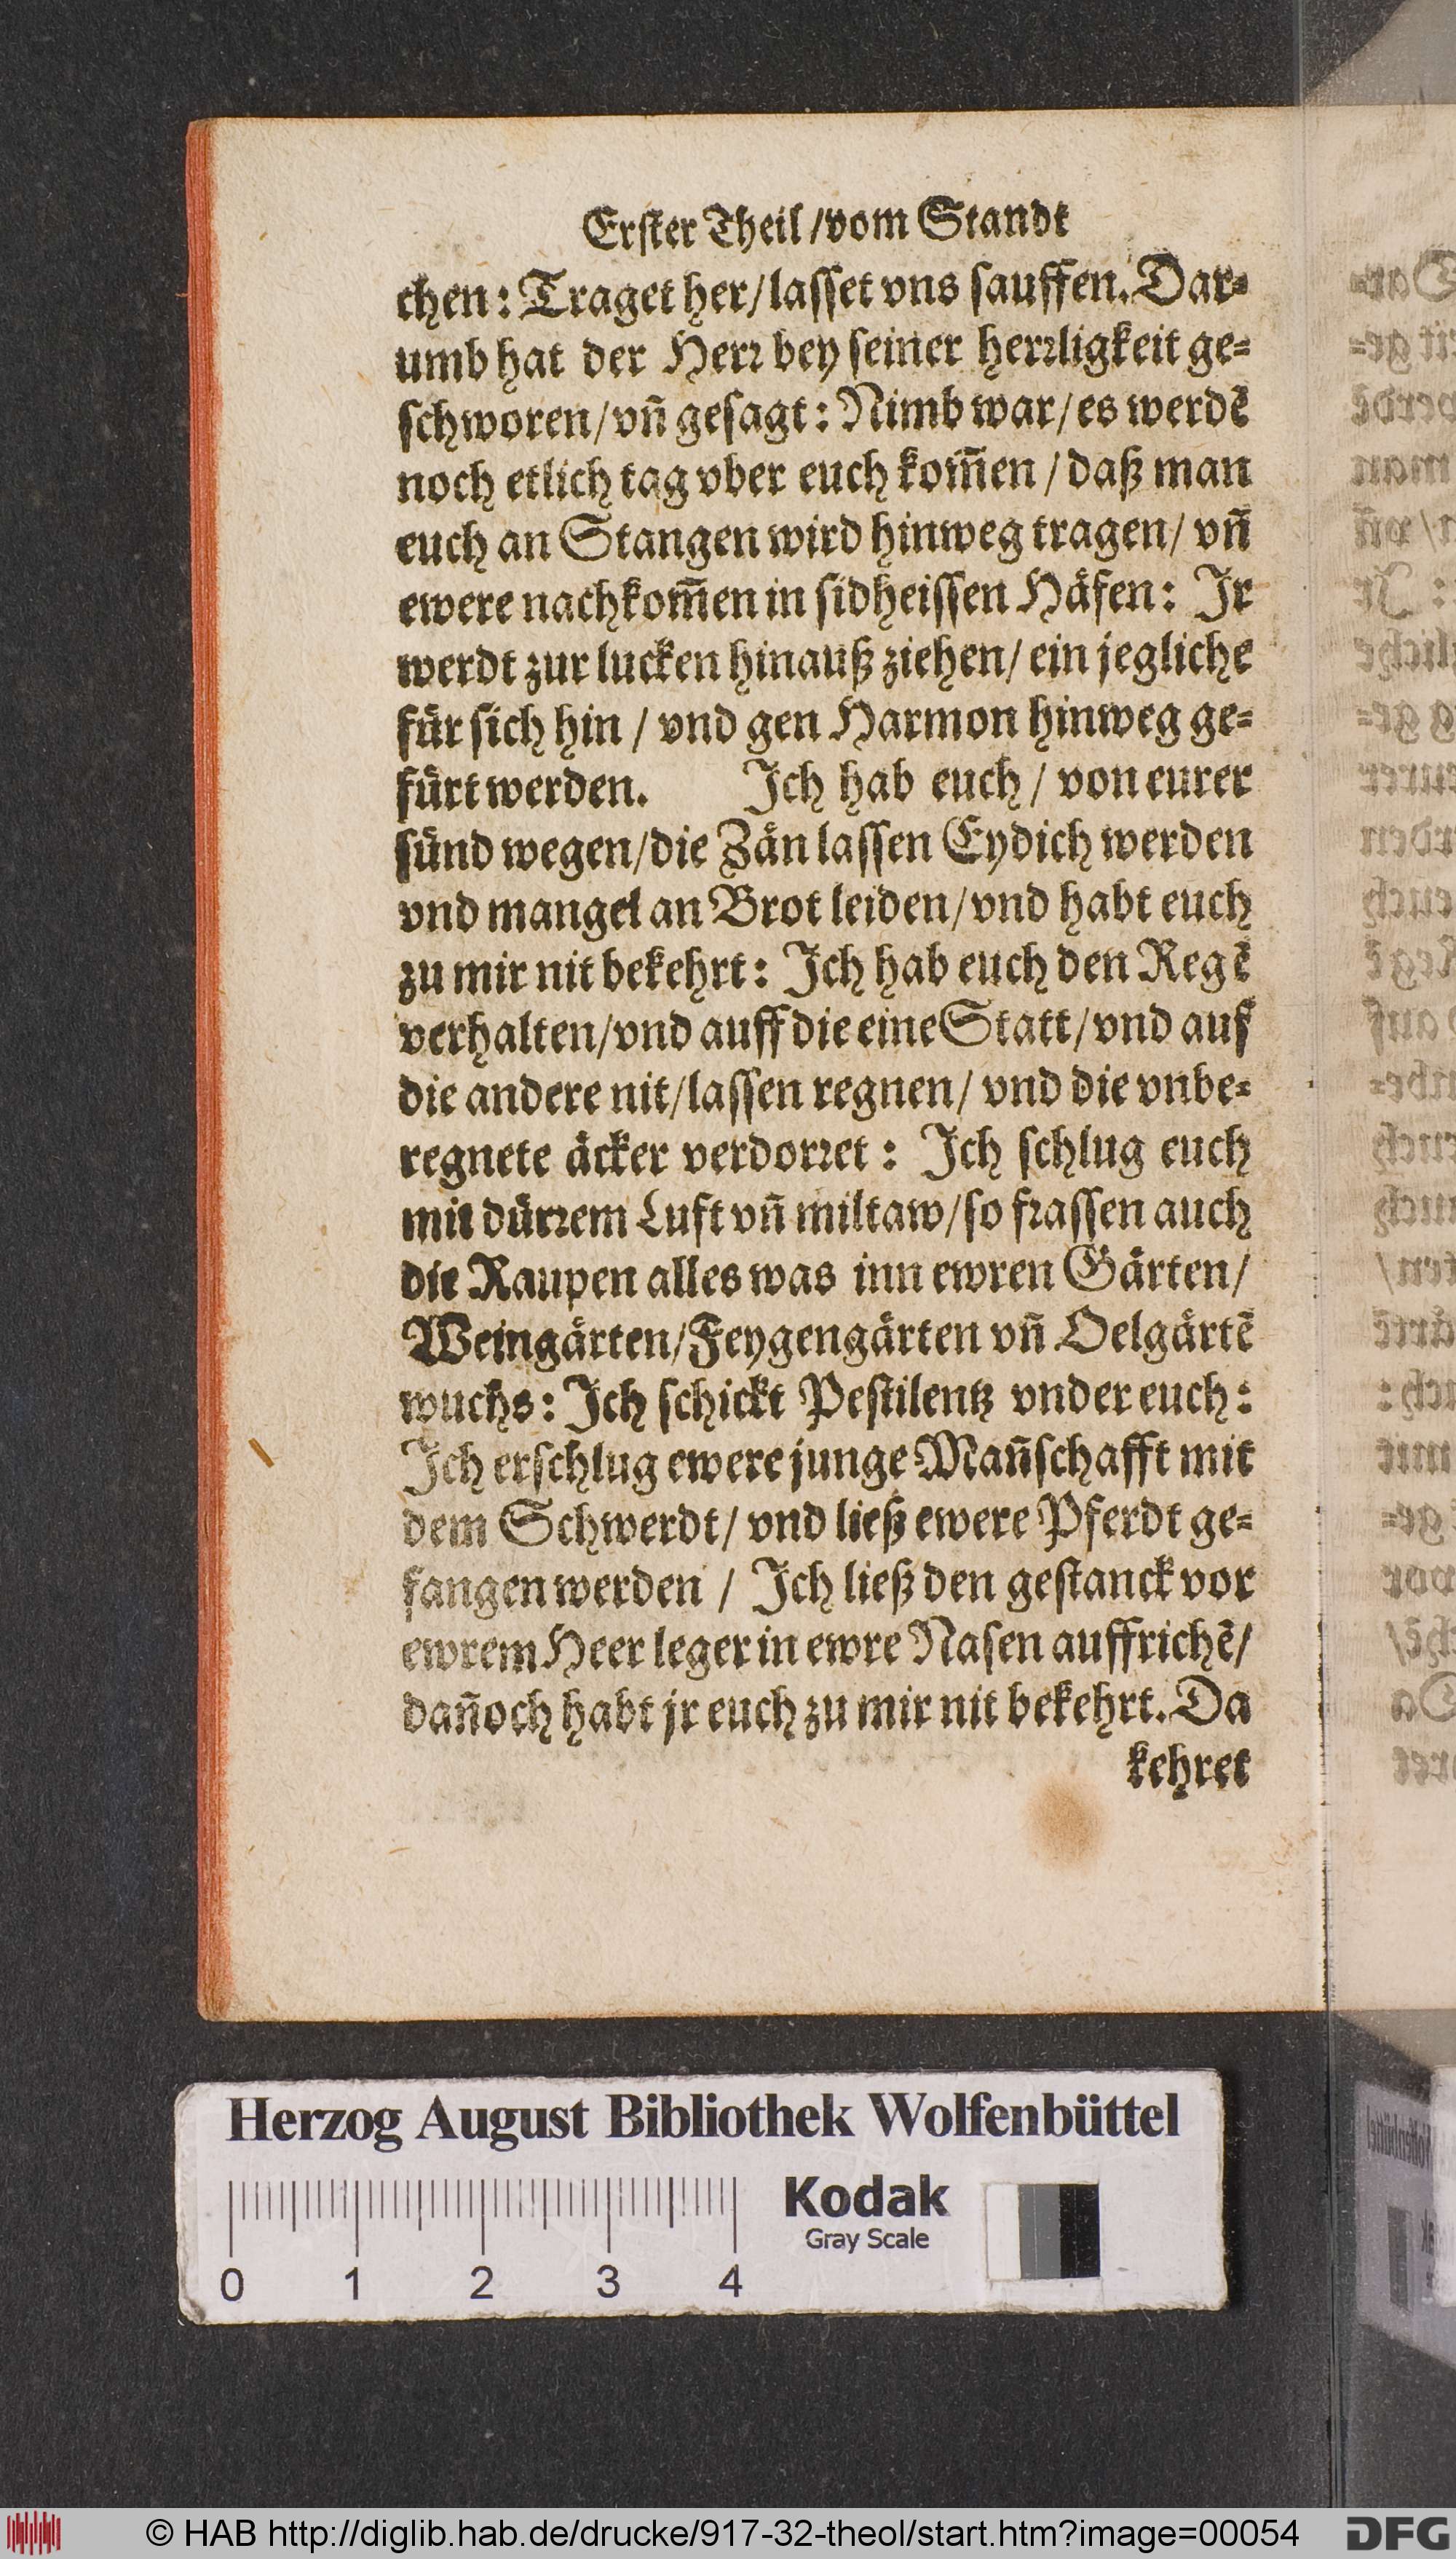 Erster Theil / vom Standt
chen: Traget her/ lasset vns sauffen. Dar-
umb hat der Herr bey seiner herrligkeit ge-
schworen/ vñ gesagt: Nimb war/ es werdẽ
noch etlich tag vber euch kom̃en / daß man
euch an Stangen wird hinweg tragen/ vñ
ewere nachkom̃en in sidheissen Häfen: Ir
werdt zur lucken hinauß ziehen/ ein jegliche
für sich hin / vnd gen Harmon hinweg ge-
fürt werden. Ich hab euch / von eurer
sünd wegen/ die Zän lassen Eydich werden
vnd mangel an Brot leiden/ vnd habt euch
zu mir nit bekehrt: Ich hab euch den Regẽ
verhalten/ vnd auff die eine Statt/ vnd auf
die andere nit/ lassen regnen/ vnd die vnbe-
regnete äcker verdorret: Ich schlug euch
mit dürrem Luft vñ miltaw/ so frassen auch
die Raupen alles was inn ewren Gärten/
Weingärten/ Feygengärten vñ Oelgärtẽ
wuchs: Ich schickt Pestilentz vnder euch:
Ich erschlug ewere junge Mañschafft mit
dem Schwerdt/ vnd ließ ewere Pferdt ge-
fangen werden / Ich ließ den gestanck vor
ewrem Heer leger in ewre Nasen auffrichẽ/
dañoch habt jr euch zu mir nit bekehrt. Da
kehret
Herzog August Bibliothek Wolfenbüttel
Kodak
Gray Scale
0 1 2 3 4
© HAB http://diglib.hab.de/drucke/917-32-theol/start.htm?image=00054
DFG